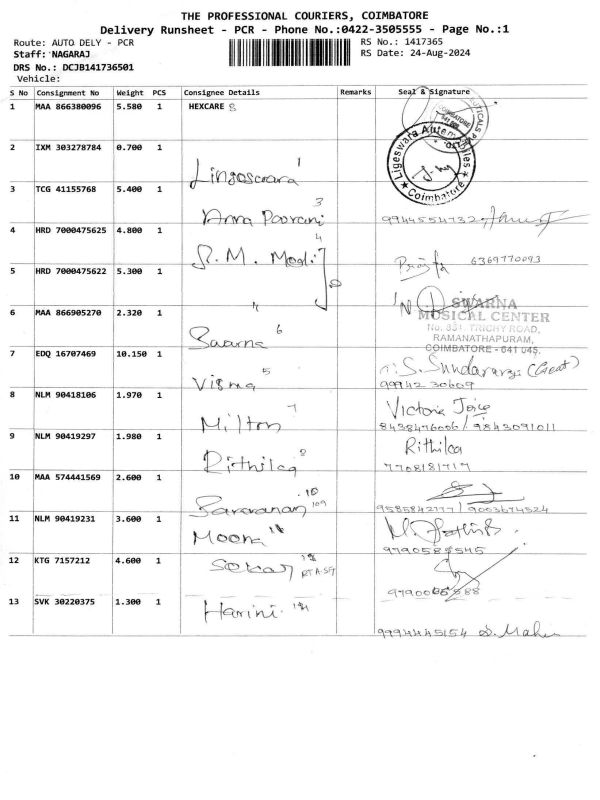 THE PROFESSIONAL COURIERS, COIMBATORE
Delivery Runsheet - PCR - Phone No.:0422-3505555 - Page No.:1
Route: AUTO DELY - PCR
RS No.: 1417365
Staff: NAGARAJ
RS Date: 24-Aug-2024
DRS No.: DCJB141736501
Vehicle:
S No Consignment No Weight PCS Consignee Details Remarks Seal & Signature
1 MAA 866380096 5.580 1 HEXCARE 8
COIMBATORE
Ligeswara Automobiles
Coimbatore
2 IXM 303278784 0.700 1 Lingeswara 1
3 TCG 41155768 5.400 1 Anna Poorani 3 9944554732
4 HRD 7000475625 4.800 1 S. M. Modi 4 6369770093
5 HRD 7000475622 5.300 1 "
SWARNA
MUSICAL CENTER
No. 351, TRICHY ROAD,
RAMANATHAPURAM,
COIMBATORE - 641 045.
6 MAA 866905270 2.320 1 Swarna 6
7 EDQ 16707469 10.150 1 Visma 5 S. Sundararaj
9994230609
8 NLM 90418106 1.970 1 Milton 7 Victoria Joice
8438476006 / 9843091011
9 NLM 90419297 1.980 1 Rithika 8 Rithika
7708181717
10 MAA 574441569 2.600 1 Saravanan 10 109
9585842777 / 9003674524
11 NLM 90419231 3.600 1 Moona
9790585545
12 KTG 7157212 4.600 1
13 SVK 30220375 1.300 1 Harini
9994445154